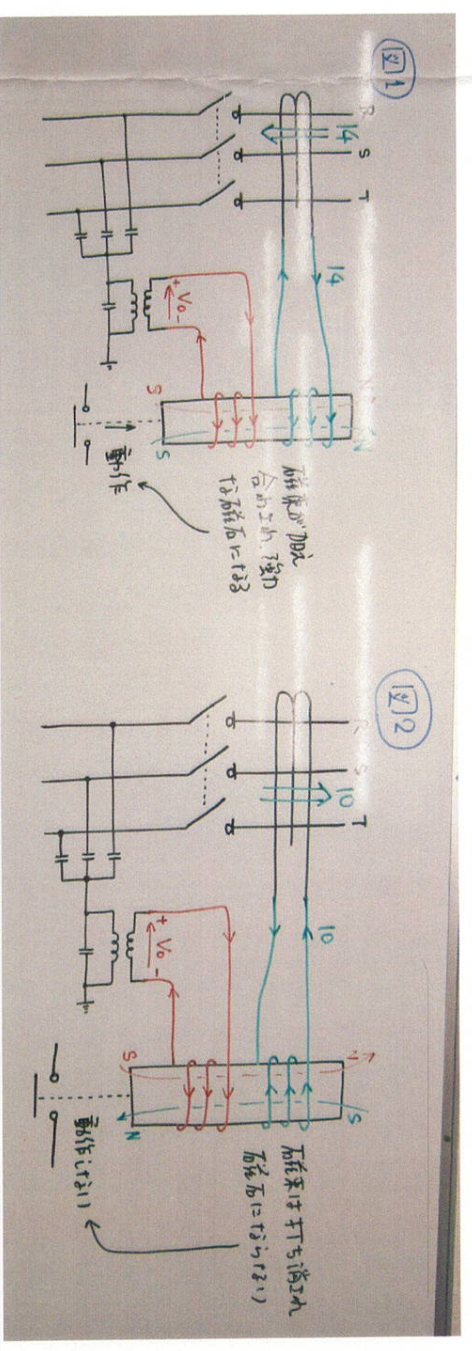 図1
R
S
T
I4
I4
+ V0 -
S
N
S
動作
磁束が加え
合わされ、強力
な磁石になる
図2
R
S
T
I0
I0
+ V0 -
S
S
N
動作しない
磁束は打ち消され
磁石にならない